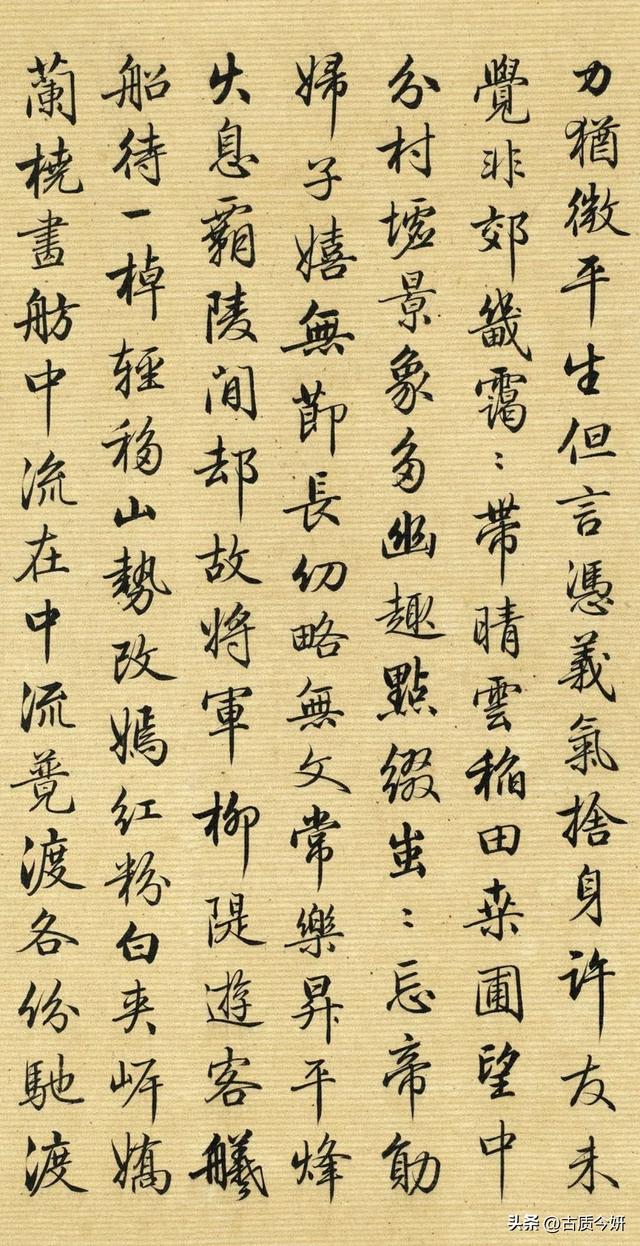 力猶微平生但言憑義氣捨身許友未
覺非郊畿靄〻帶晴雲稻田桑圃望中
分村墟景象多幽趣點綴蚩〻忘帝勛
婦子嬉無節長幼略無文常樂昇平烽
火息霸陵閒却故將軍柳隄遊客艤
船待一棹輕移山勢改嫣紅粉白夾岸嬌
蘭橈畫舫中流在中流渡各份馳渡
头条@古质今妍